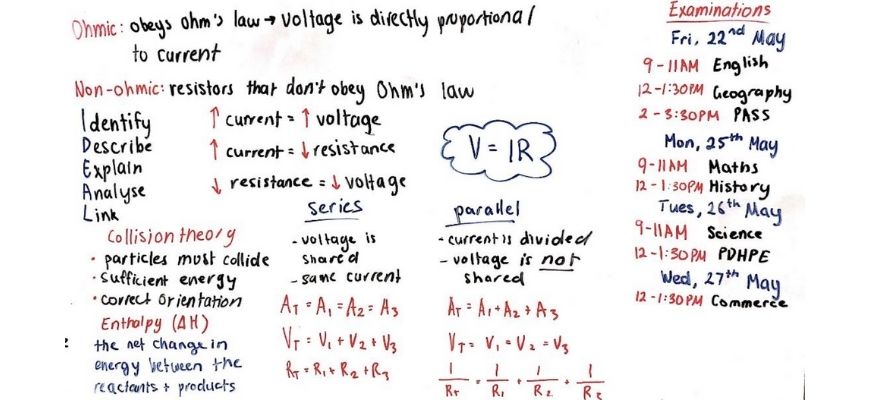 Ohmic: obeys ohm's law → voltage is directly proportional
to current
Non-ohmic: resistors that don't obey Ohm's law
Identify
Describe
Explain
Analyse
Link
↑ current = ↑ voltage
↑ current = ↓ resistance
↓ resistance = ↓ voltage
V = IR
Collision theory
• particles must collide
• sufficient energy
• correct orientation
Enthalpy (ΔH)
the net change in
energy between the
reactants + products
series
- voltage is
shared
- same current
A_T = A_1 = A_2 = A_3
V_T = V_1 + V_2 + V_3
R_T = R_1 + R_2 + R_3
parallel
- current is divided
- voltage is not
shared
A_T = A_1 + A_2 + A_3
V_T = V_1 = V_2 = V_3
1/R_T = 1/R_1 + 1/R_2 + 1/R_3
Examinations
Fri, 22nd May
9-11AM English
12-1:30PM Geography
2-3:30PM PASS
Mon, 25th May
9-11AM Maths
12-1:30PM History
Tues, 26th May
9-11AM Science
12-1:30PM PDHPE
Wed, 27th May
12-1:30PM Commerce